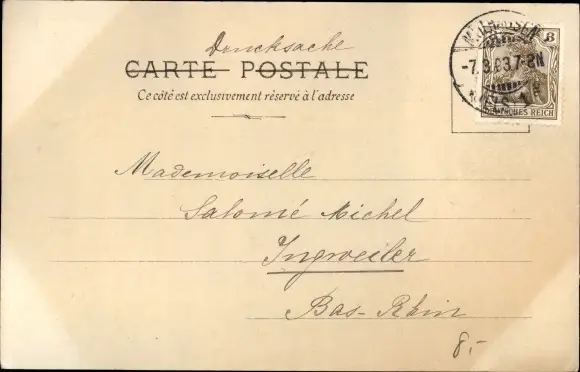 Drucksache
CARTE POSTALE
Ce côté est exclusivement réservé à l'adresse
3
REICH
Mademoiselle
Salomé Michel
Ingweiler
Bas-Rhin
8.-